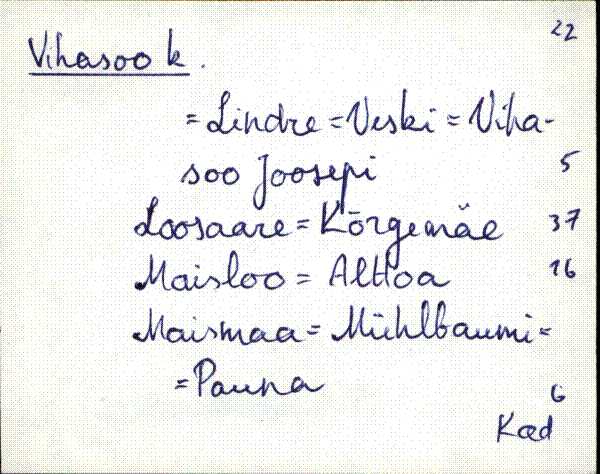 22
Vihasoo k.
= Lindre = Veski = Viha-
soo Joosepi 5
Loosaare = Kõrgemäe 37
Maisloo = Alttoa 16
Maismaa = Mühlbaumi =
= Pauna 6
Kad